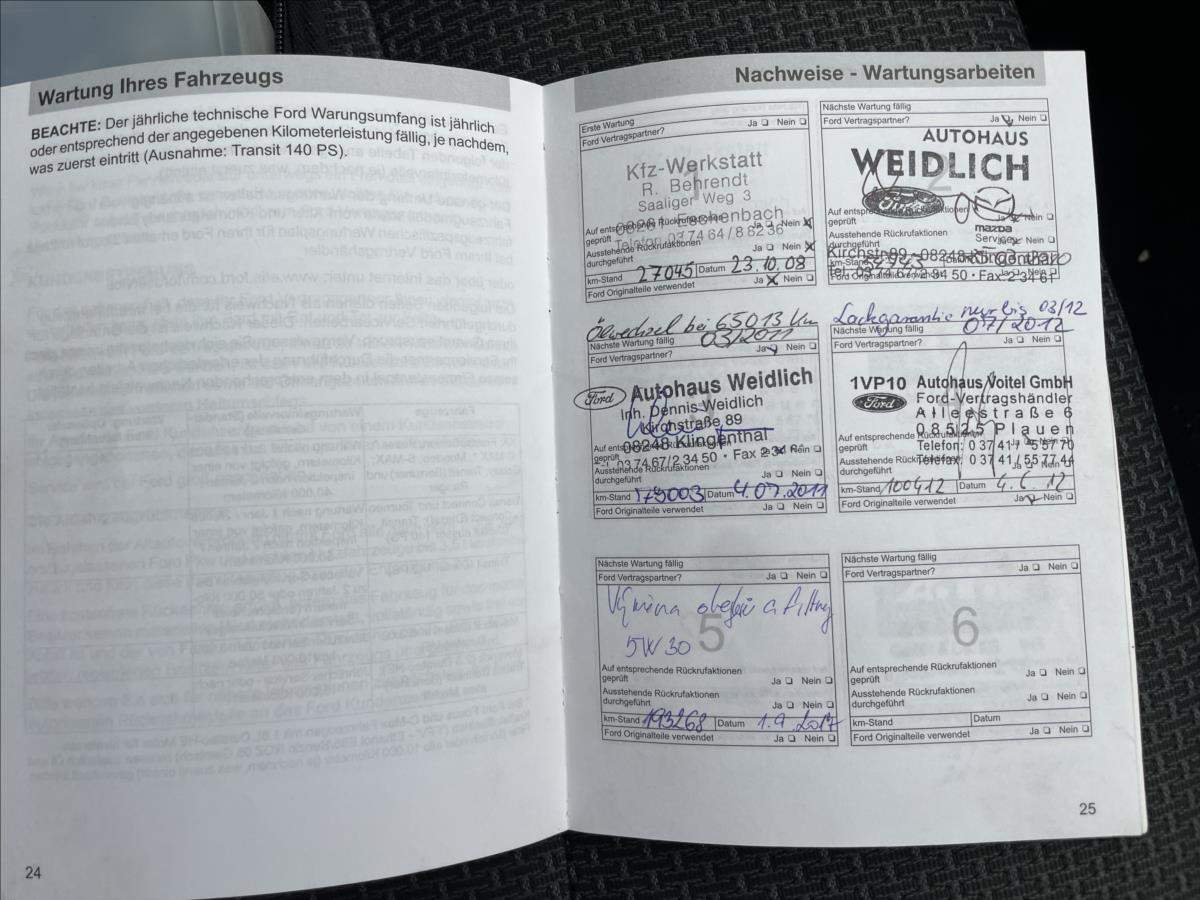 Wartung Ihres Fahrzeugs
BEACHTE: Der jährliche technische Ford Warungsumfang ist jährlich
oder entsprechend der angegebenen Kilometerleistung fällig, je nachdem,
was zuerst eintritt (Ausnahme: Transit 140 PS).
24
Nachweise - Wartungsarbeiten
Erste Wartung
Ford Vertragspartner? Ja Nein
Kfz-Werkstatt
R. Behrendt
Saaliger Weg 3
Eschenbach
Telefon 03 74 64 / 8 82 36
Auf entsprechende Rückrufaktionen
geprüft Ja Nein
Ausstehende Rückrufaktionen
durchgeführt Ja Nein
km-Stand 27045 Datum 23.10.08
Ford Originalteile verwendet Ja Nein
Nächste Wartung fällig
Ford Vertragspartner? Ja Nein
AUTOHAUS
WEIDLICH
2
Ford
mazda
Service
Auf entsprechende Rückrufaktionen
geprüft Ja Nein
Ausstehende Rückrufaktionen
durchgeführt Nein
Kirchstr. 89 · 08248 Klingenthal
Fax 2 34 61
Ölwechsel bei 65013 Km
Nächste Wartung fällig 03/2011
Ford Vertragspartner? Ja Nein
Ford
Autohaus Weidlich
Inh. Dennis Weidlich
Kirchstraße 89
08248 Klingenthal
03 74 67/2 34 50 · Fax 2 34
Auf entsprechende Rückrufaktionen
geprüft Nein
Ausstehende Rückrufaktionen
durchgeführt Ja Nein
km-Stand Datum 4.07.2011
Ford Originalteile verwendet Ja Nein
Lackgarantie nur bis 03/12
Nächste Wartung fällig 07/2012
Ford Vertragspartner? Ja Nein
1VP10 Autohaus Voitel GmbH
Ford Ford-Vertragshändler
Alleestraße 6
08525 Plauen
Telefon: 0 37 41 / 5 57 70
Telefax: 0 37 41 / 55 77 44
Auf entsprechende Rückrufaktionen
geprüft
Ausstehende Rückrufaktionen
durchgeführt Ja Nein
km-Stand 100412 Datum 4.6.12
Ford Originalteile verwendet Ja Nein
Nächste Wartung fällig
Ford Vertragspartner? Ja Nein
Výměna oleje a filtry
5W30
5
Auf entsprechende Rückrufaktionen
geprüft Ja Nein
Ausstehende Rückrufaktionen
durchgeführt Ja Nein
km-Stand 193268 Datum 1.9.2017
Ford Originalteile verwendet Ja Nein
Nächste Wartung fällig
Ford Vertragspartner? Ja Nein
6
Auf entsprechende Rückrufaktionen
geprüft Ja Nein
Ausstehende Rückrufaktionen
durchgeführt Ja Nein
km-Stand Datum
Ford Originalteile verwendet Ja Nein
25